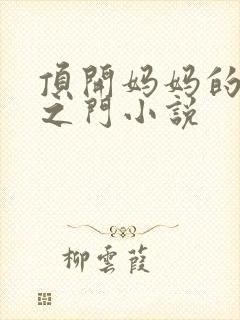 頂開妈妈的
之门小说
柳雲葭